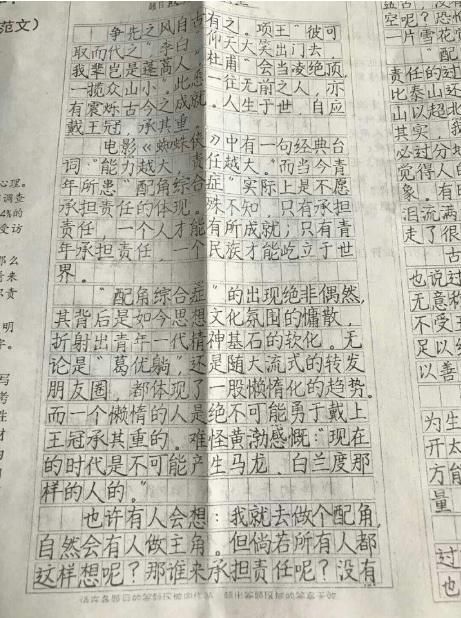 范文）
争先之风自古有之。项王“彼可
取而代之”李白“仰天大笑出门去，
我辈岂是蓬蒿人”杜甫“会当凌绝顶，
一揽众山小”。此悉一往无前之人，亦
有震烁古今之成就。人生于世，自应
戴王冠，承其重。
电影《蜘蛛侠》中有一句经典台
词：“能力越大，责任越大。”而当今青
年所患“配角综合症”实际上是不愿
承担责任的体现。殊不知，只有承担
责任，一个人才能有所成就；只有青
年承担责任，一个民族才能屹立于世
界。
“配角综合症”的出现绝非偶然，
其背后是如今思想文化氛围的慵散，
折射出青年一代精神基石的软化。无
论是“葛优躺”，还是随大流式的转发
朋友圈，都体现了一股懒惰化的趋势。
而一个懒惰的人是绝不可能勇于戴上
王冠承其重的。难怪黄渤感慨：“现在
的时代是不可能产生马龙．白兰度那
样的人的。”
也许有人会想：我就去做个配角，
自然会有人做主角。但倘若所有人都
这样想呢？那谁来承担责任呢？没有
心理。
调查
4%的
受访
那么
看来
职责
明
字。
写
考
生
材
由
空呢？恐
一片雪花
“配
责任的过
比泰山还
山以超北
其实，我
必过分地
觉得人的
象。有
泪流满
走了很
古
也说过
无意称
不受王
足以纟
以善
为生
开太
方能
量
过
也